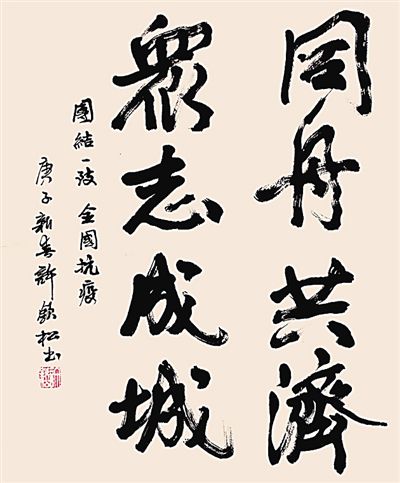 同舟共濟
眾志成城
團結一致 全國抗疫
庚子新春許欽松書